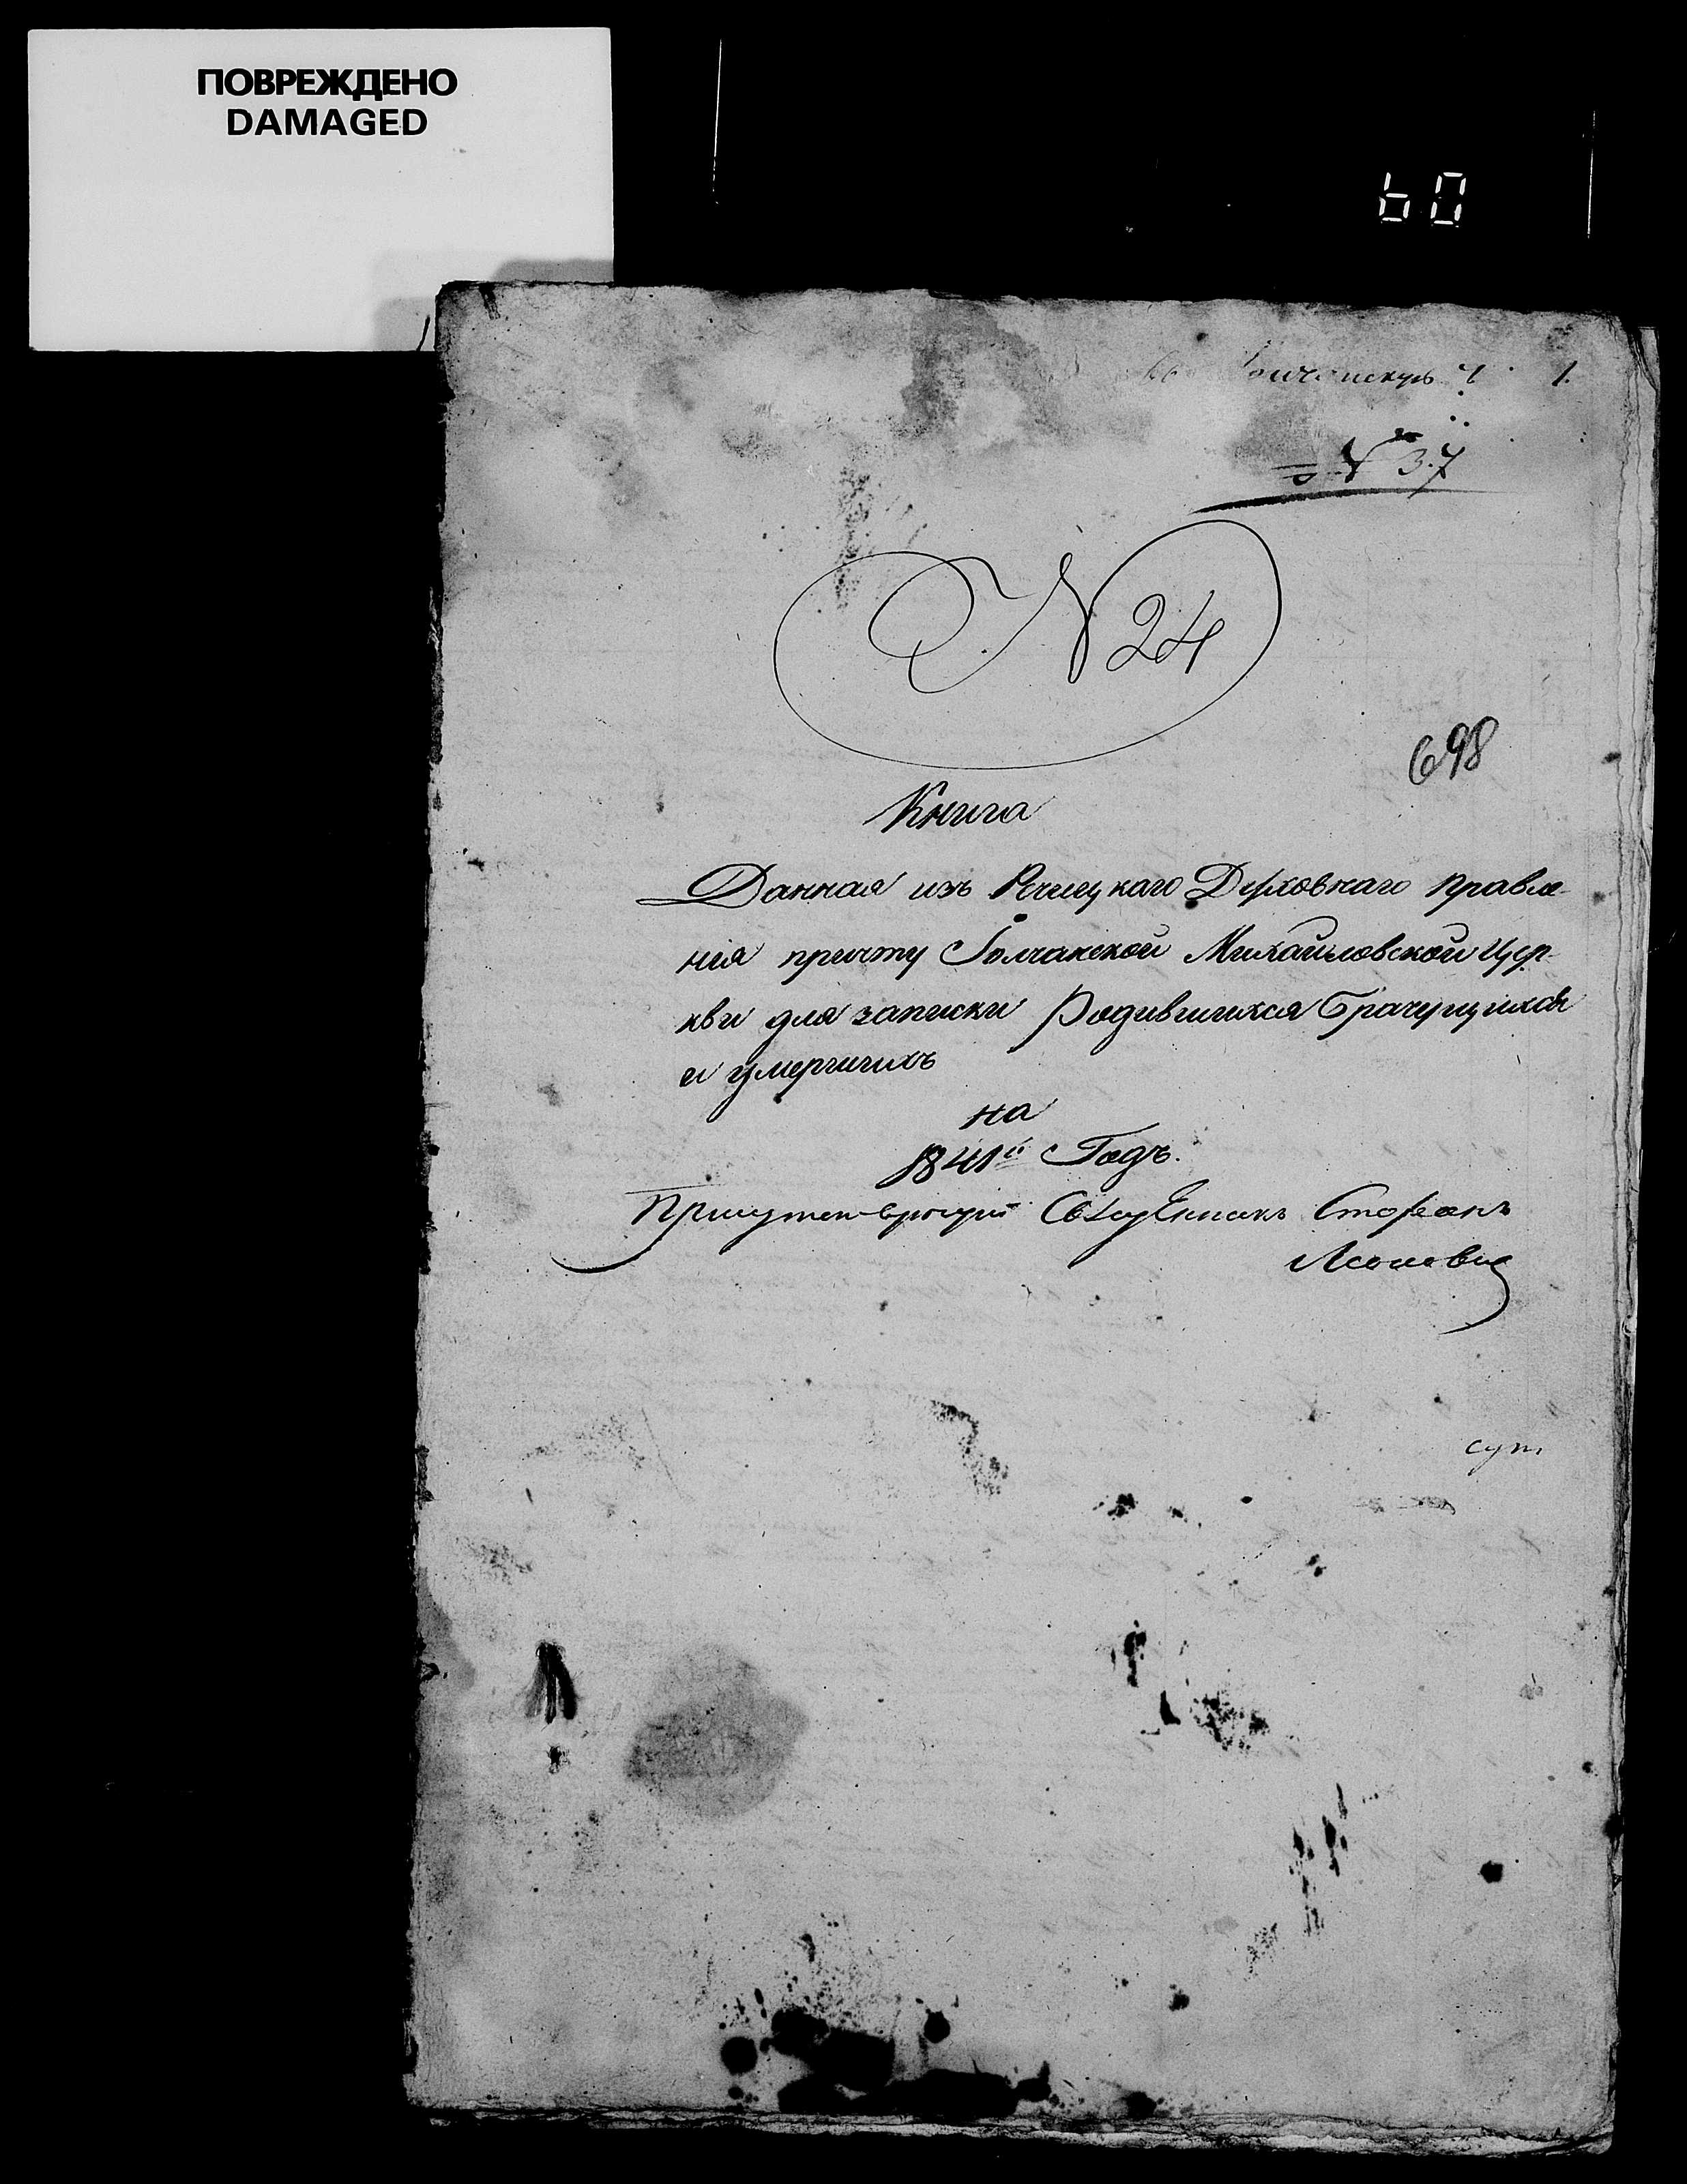 ПОВРЕЖДЕНО
DAMAGED
60
1.
№ 37
№ 24
698
Книга
Данная изъ Речицкаго Духовнаго Правле-
нія причту Михайловской Цер-
кви для записки Родившихся Брачущихся
и умершихъ
на
1841й Годъ.
Присутствующій Священникъ Стефанъ